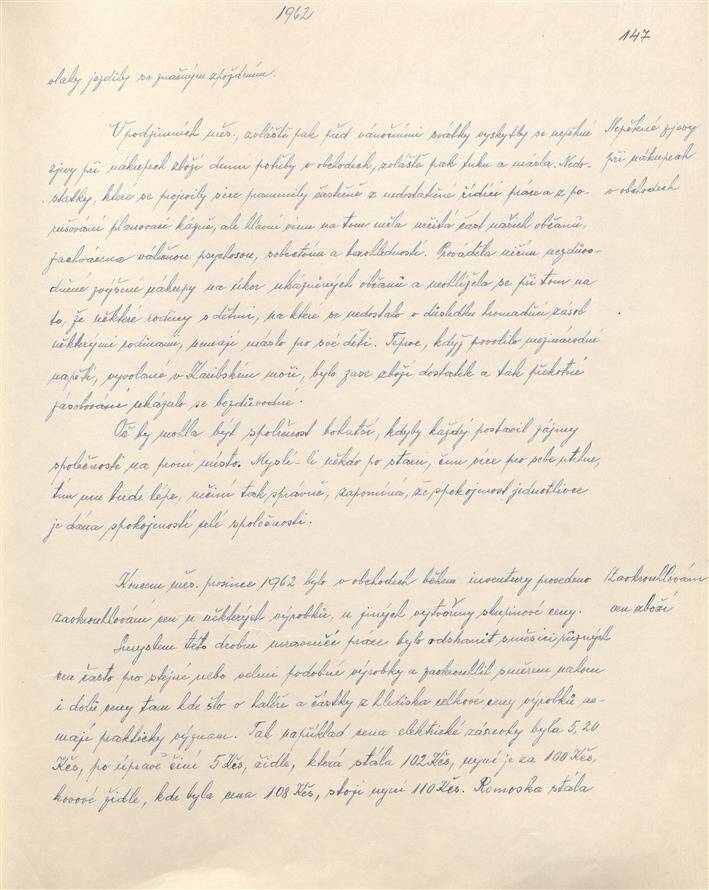 1962
147
vlaky jezdily se značným zpožděním.
V podzimních měs., zvláště pak před vánočními svátky vyskytly se nepěkné
Nepěkné zjevy
zjevy při nákupech zboží denní potřeby v obchodech, zvláště pak tuku a másla. Nedo-
při nákupech
statky, které se projevily sice pramenily částečně z nedostatečné řídící práce a z po-
v obchodech
rušování plánovací kázně, ale hlavní vinu na tom měla určitá část našich občanů,
zachvácena válečnou psychosou, sobectvím a bezohledností. Prováděla ničím nezdůvo-
dněné zvýšené nákupy na úkor ukázněných občanů a neohlížela se při tom na
to, že některé rodiny s dětmi, na které se nedostalo v důsledku hromadění zásob
některými rodinami, nemají máslo pro své děti. Teprve, když povolilo mezinárodní
napětí, vyvolané v Karibském moři, bylo zase zboží dostatek a tak překotné
zásobování ukázalo se bezdůvodné.
Oč by mohla být společnost bohatší, kdyby každý postavil zájmy
společnosti na první místo. Myslí-li někdo po staru, čím více pro sebe utrhne,
tím mu bude lépe, učiní tak správně, zapomíná, že spokojenost jednotlivce
je dána spokojeností celé společnosti.
Koncem měs. prosince 1962 bylo v obchodech během inventury provedeno
Zaokrouhlování
zaokrouhlování cen u některých výrobků, u jiných vytvořeny skupinové ceny.
cen zboží
Smyslem této drobné mravenčí práce bylo odstranit směsici různých
cen často pro stejné nebo velmi podobné výrobky a zaokrouhlit směrem nahoru
i dolů ceny tam kde šlo o haléře a částky z hlediska celkové ceny výrobků ne-
mají praktický význam. Tak například cena elektrické zásuvky byla 5,20
Kčs, po úpravě činí 5 Kčs, židle, která stála 102 Kčs, nyní je za 100 Kčs,
kovové židle, kde byla cena 108 Kčs, stojí nyní 110 Kčs. Romoska stála